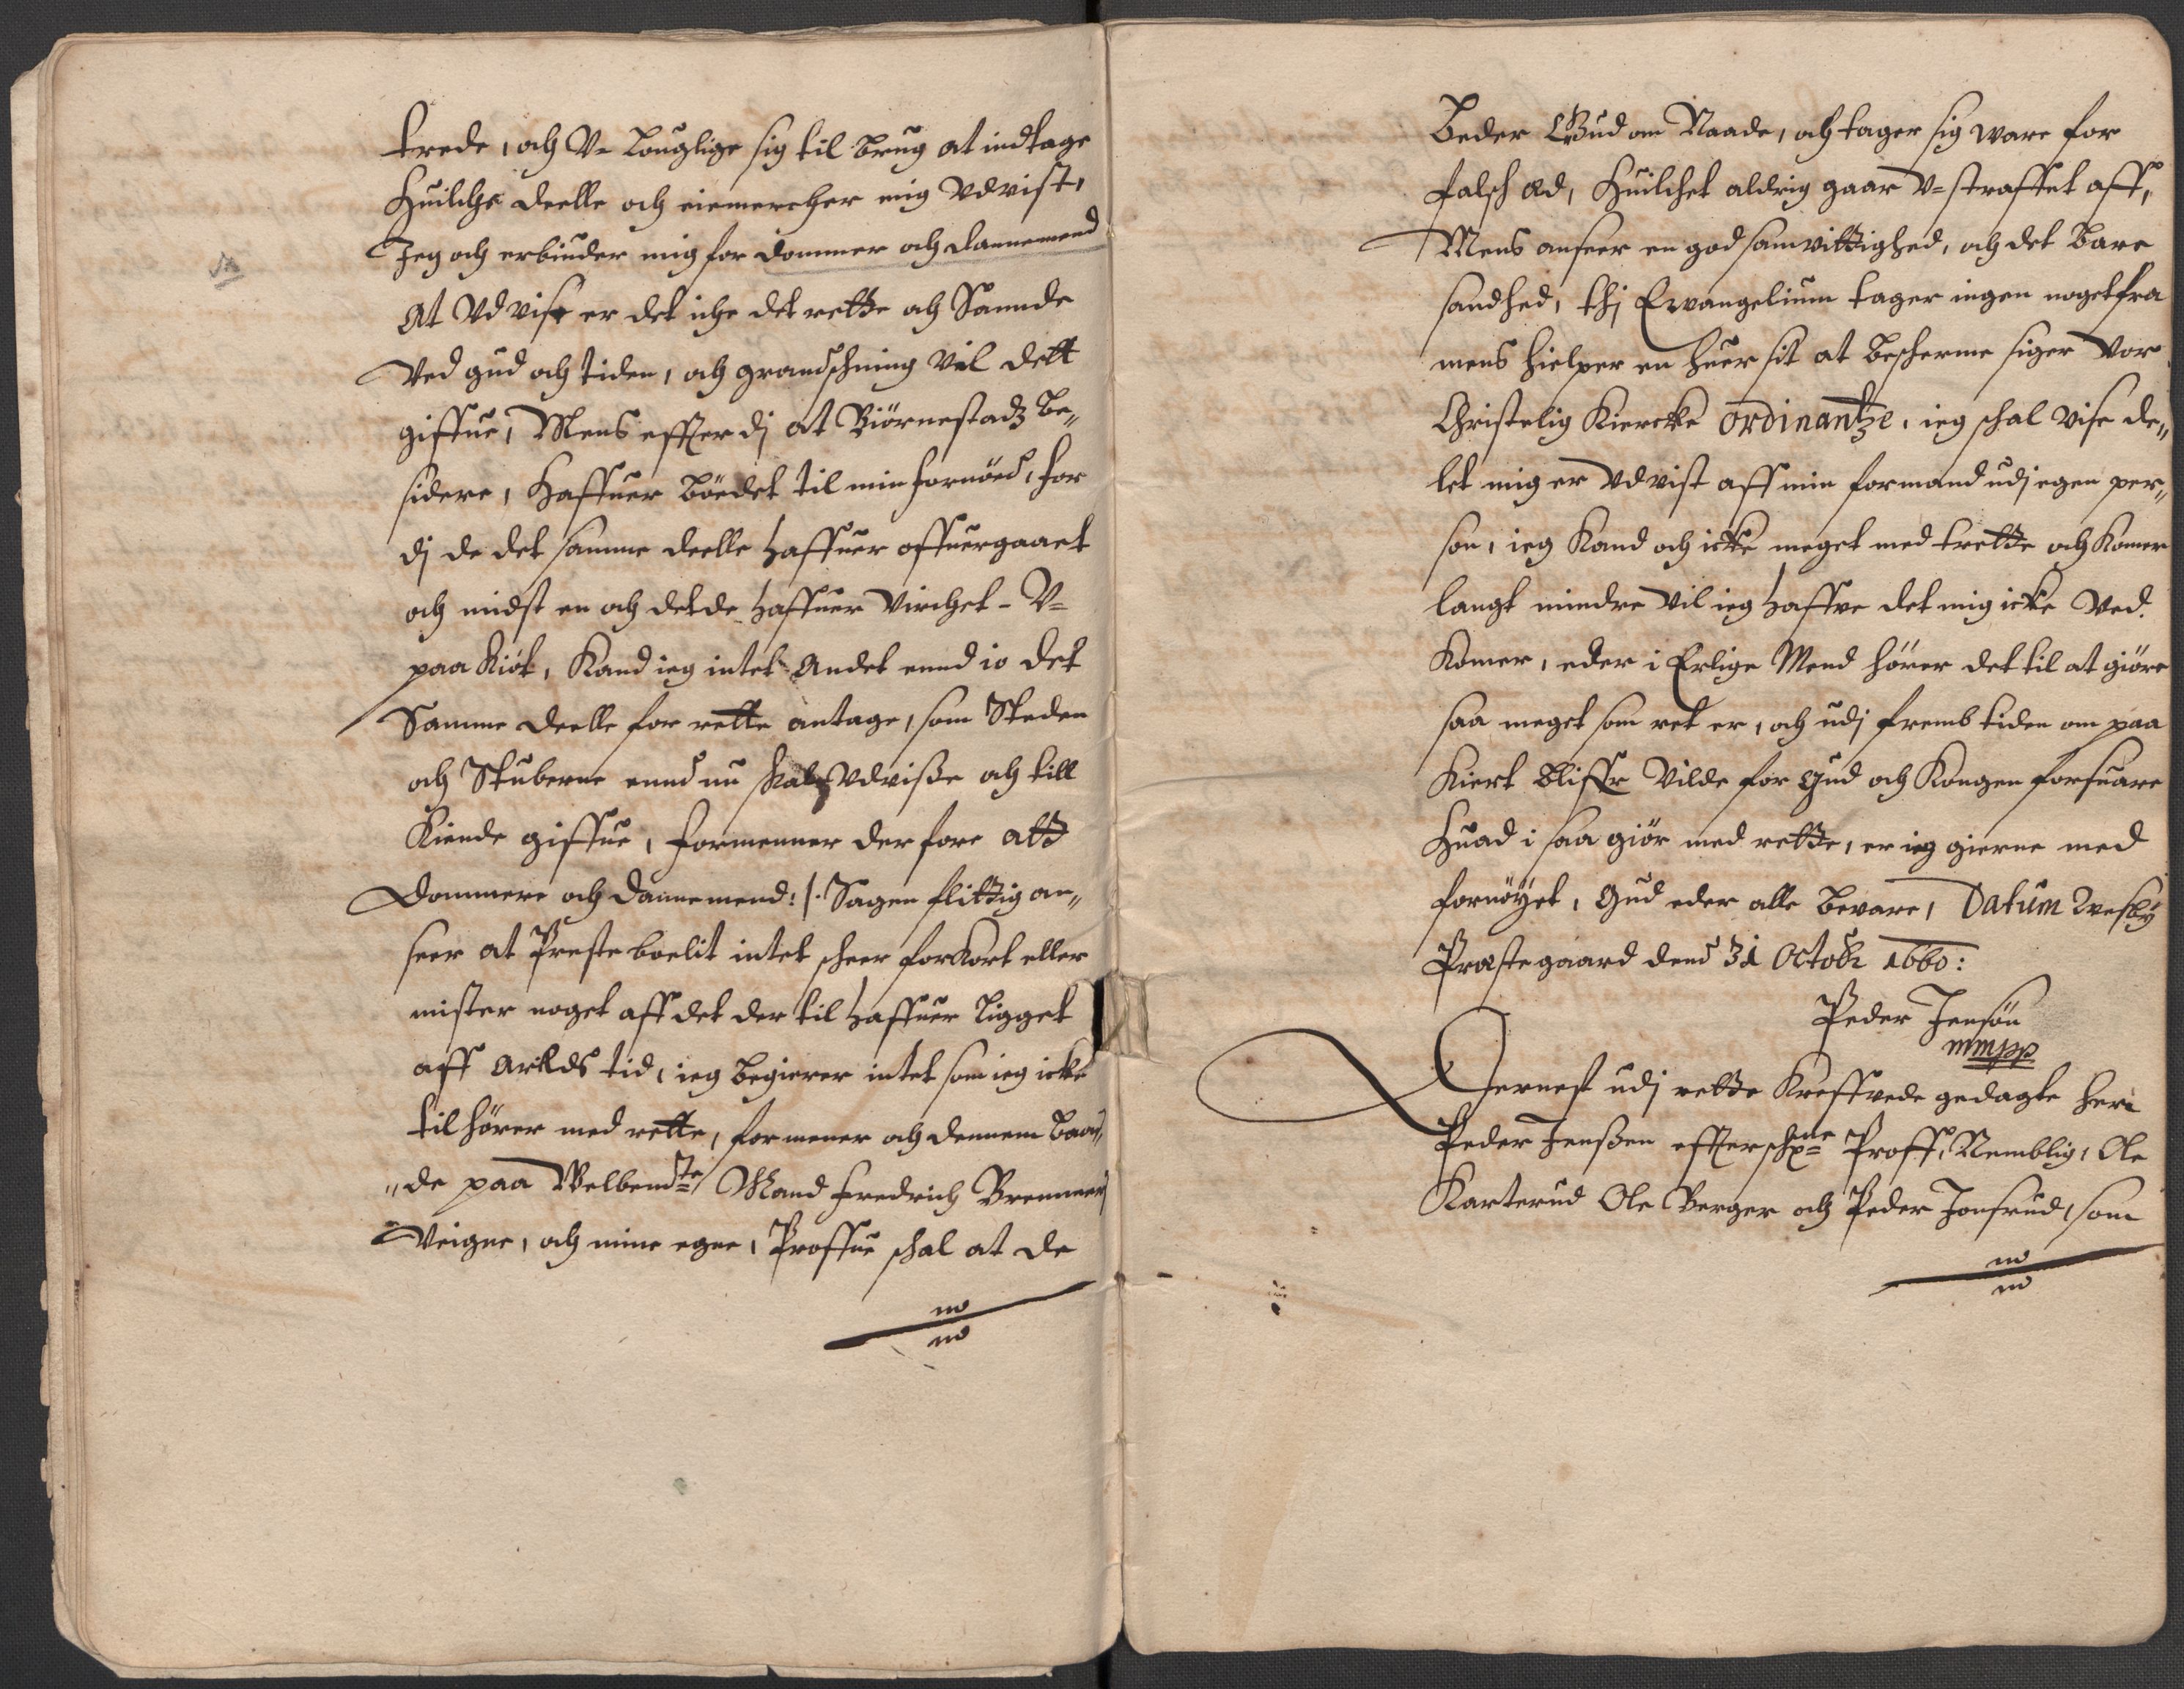 trede, och V- Louglige sig til brug at indtage
Huilche deelle och eiemercher mig Vdvist,
Jeg och erbiuder mig for dommer och dannemend
At Vdvise er det iche det rette och Sannde
Ved gud och tiden, och grandschning Vil dett
giffue, Mens effter dj at Biörnestadz be„
sidere, Haffuer böedet til min fornöed, for
dj de det samme deelle haffuer offuergaaet
och midst en och det de haffuer Virchet - V=
paa Kiöt, Kand ieg intet Andet ennd io det
Samme deelle for rette antage, som Steden
och Stuberne ennd nu skal Vdviisse och till
Kiende giffue, formenner der fore att
Dommere och Dannemend: /. Sagen flittig an„
seer at Preste boelit intet scheer forkort eller
mister noget aff det der til haffuer Ligget
aff Arilds tid, ieg begierer intet som ieg icke
tilhörer med rette, formener och dennem baa„
„de paa Welbemdte Mand Fredrich Brenners
Veigne, och mine egne, Proffue schal at de
Beder Gud om Naade, och tager sig ware for
falsch æd, Huilchet aldrig gaar V=straffet aff,
Mens anseer en god samvittighed, och det bare
sandhed, thj Ewangelium tager ingen noget fra
mens hielper en huer sit at bescherme siger Vor
Christelig Kiercke ordinantze, ieg schal vise de„
let mig er Vdvist aff min formand udj egen per„
son, ieg Kand och icke meget med trette och Komer
langt mindre Vil ieg haffve det mig icke Ved.
Komer, eder i Erlige Mend hörer det til at giöre
saa meget som ret er, och udj frembtiden om paa
Kiert bliffr Vilde for Gud och Kongen forsuare
Huad i saa giör med rette, er ieg gierne med
fornöyet, Gud eder alle bevare, Datum Wesby
Præstegaard dend 31 Octobr 1660:
Peder Jensön
mmpp
Dernest udj rette Kreffvede gedagte Herr
Peder Jenssen effterschne Proff, Nemblig, Ole
Karterud Ole Berger och Peder Jonsrud, som